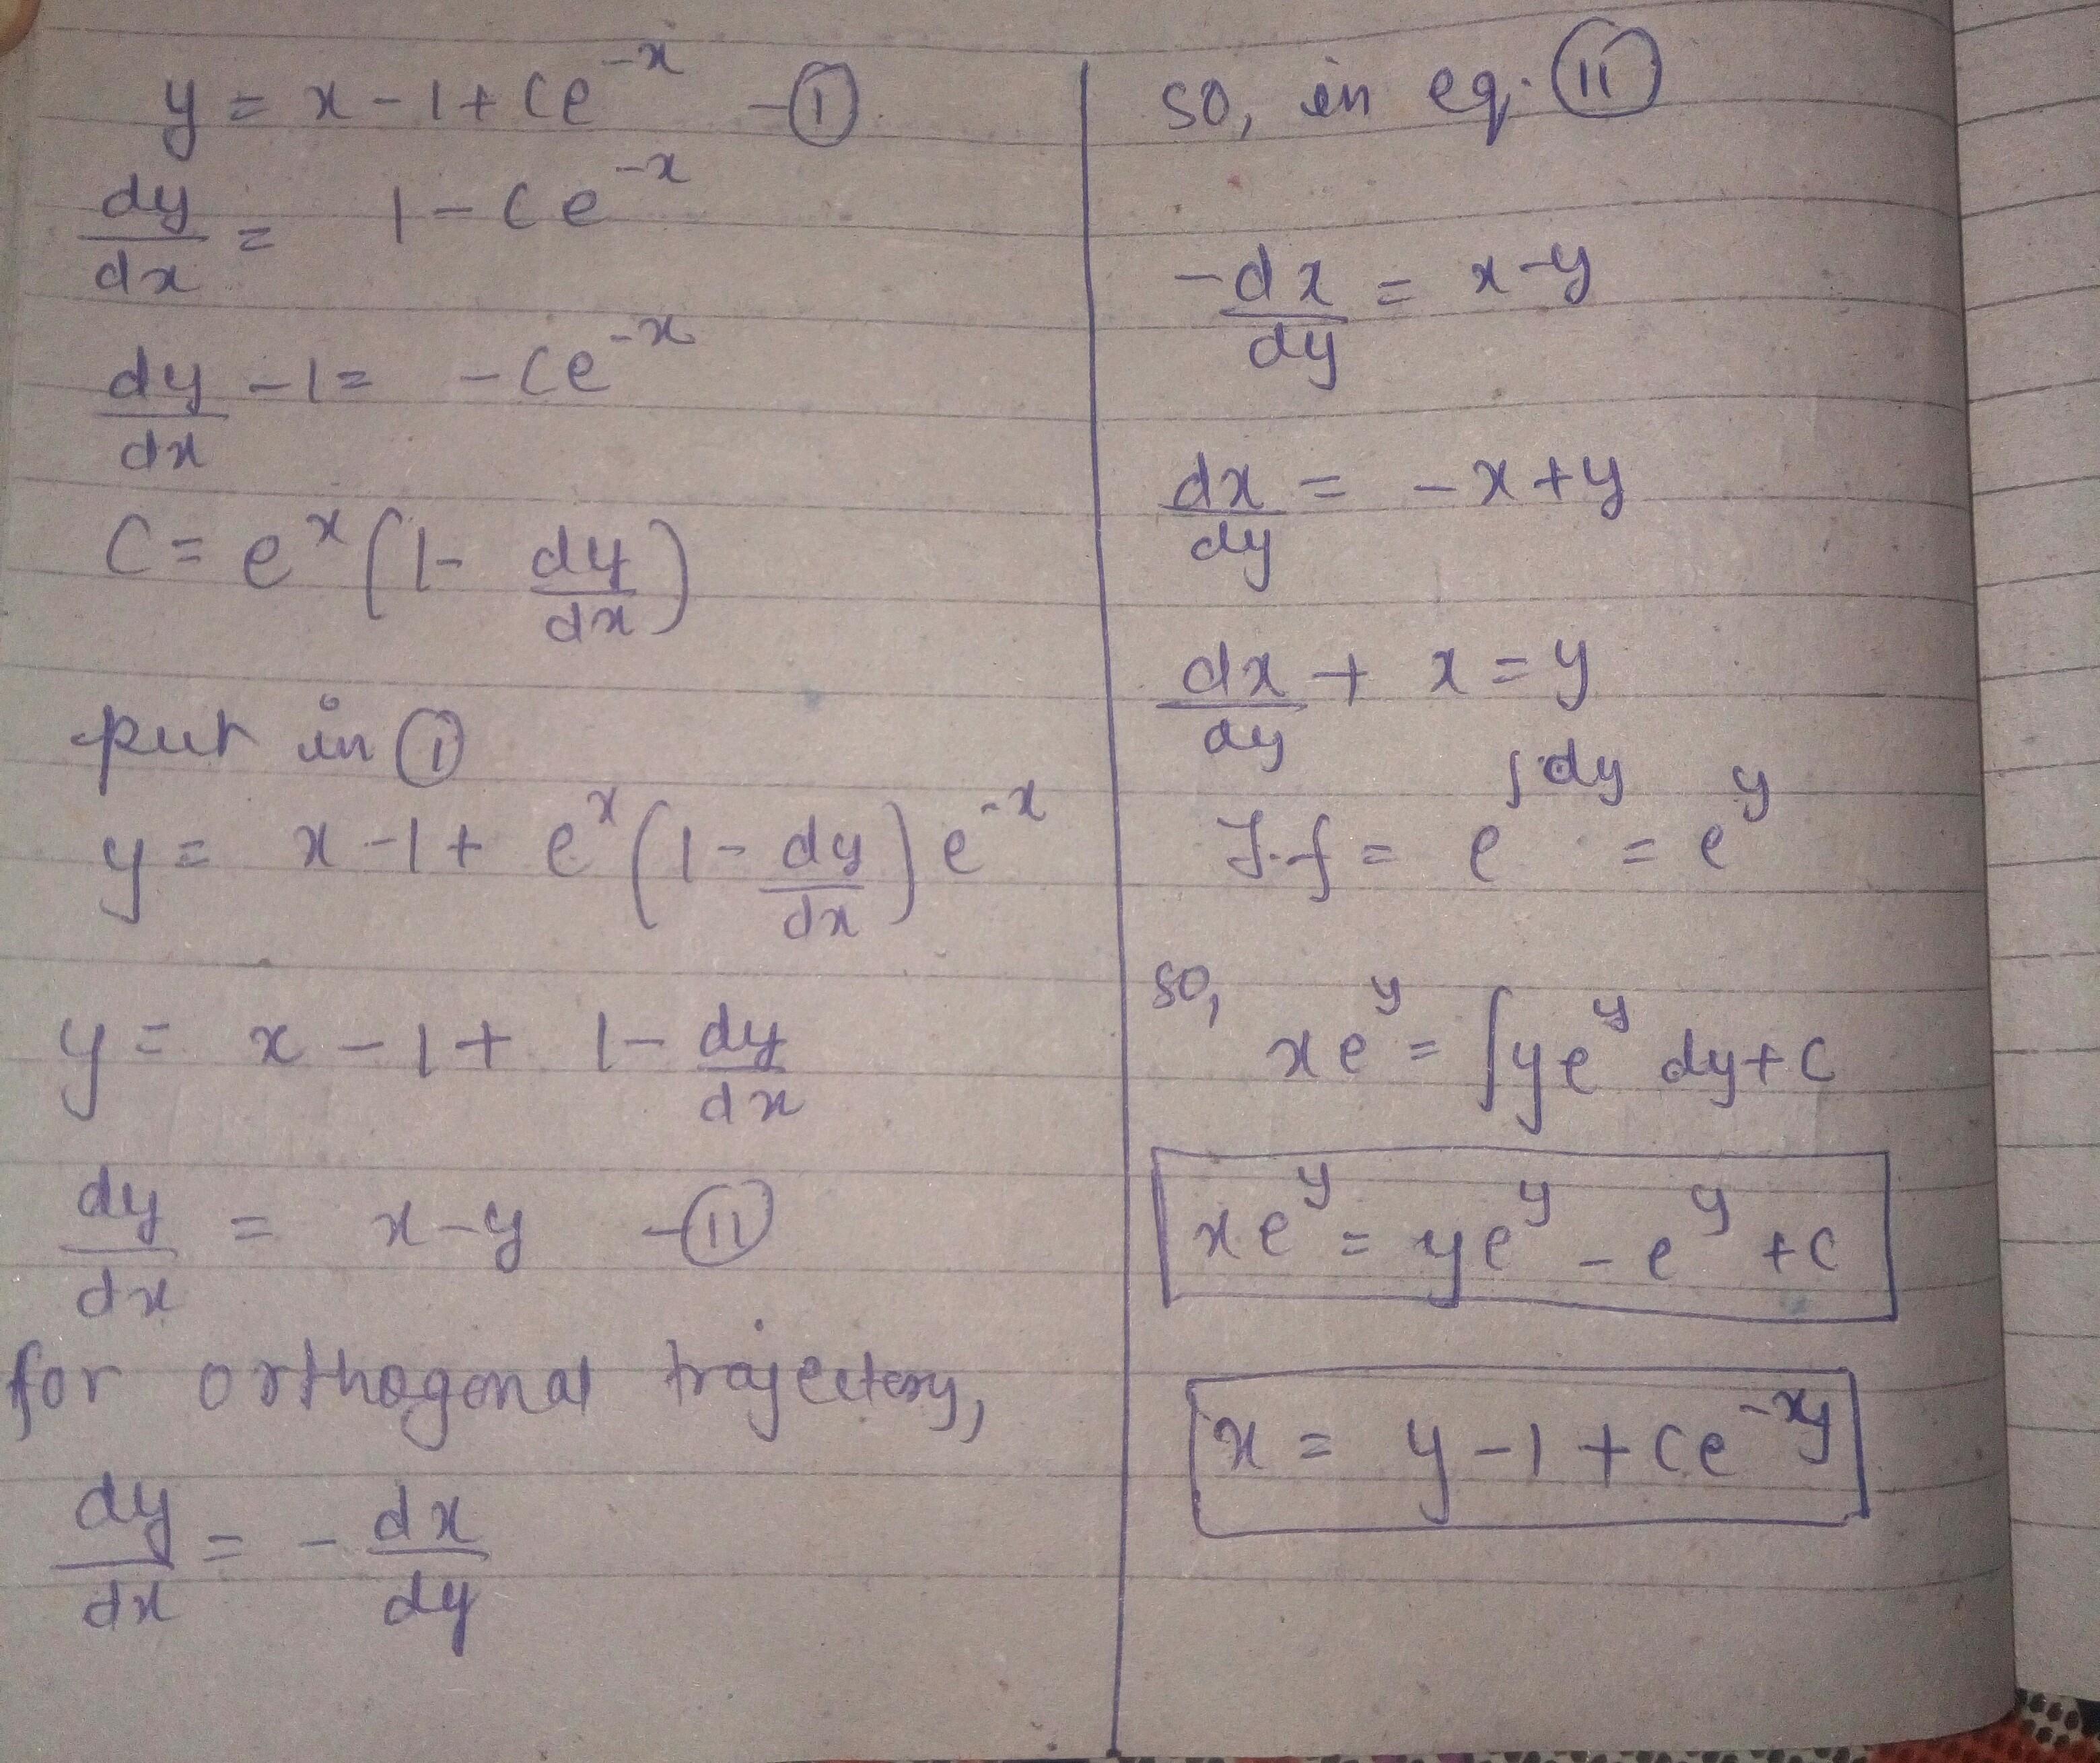 y = x - 1 + Ce^{-x} - ①
dy/dx = 1 - Ce^{-x}
dy/dx - 1 = - Ce^{-x}
C = e^x (1 - dy/dx)
put in ①
y = x - 1 + e^x (1 - dy/dx) e^{-x}
y = x - 1 + 1 - dy/dx
dy/dx = x - y - ⑪
for orthogonal trajectory,
dy/dx = - dx/dy
so, in eq. ⑪
- dx/dy = x - y
dx/dy = - x + y
dx/dy + x = y
I.f = e^{∫dy} = e^y
so,
xe^y = ∫ye^y dy + c
xe^y = ye^y - e^y + c
x = y - 1 + ce^{-y}